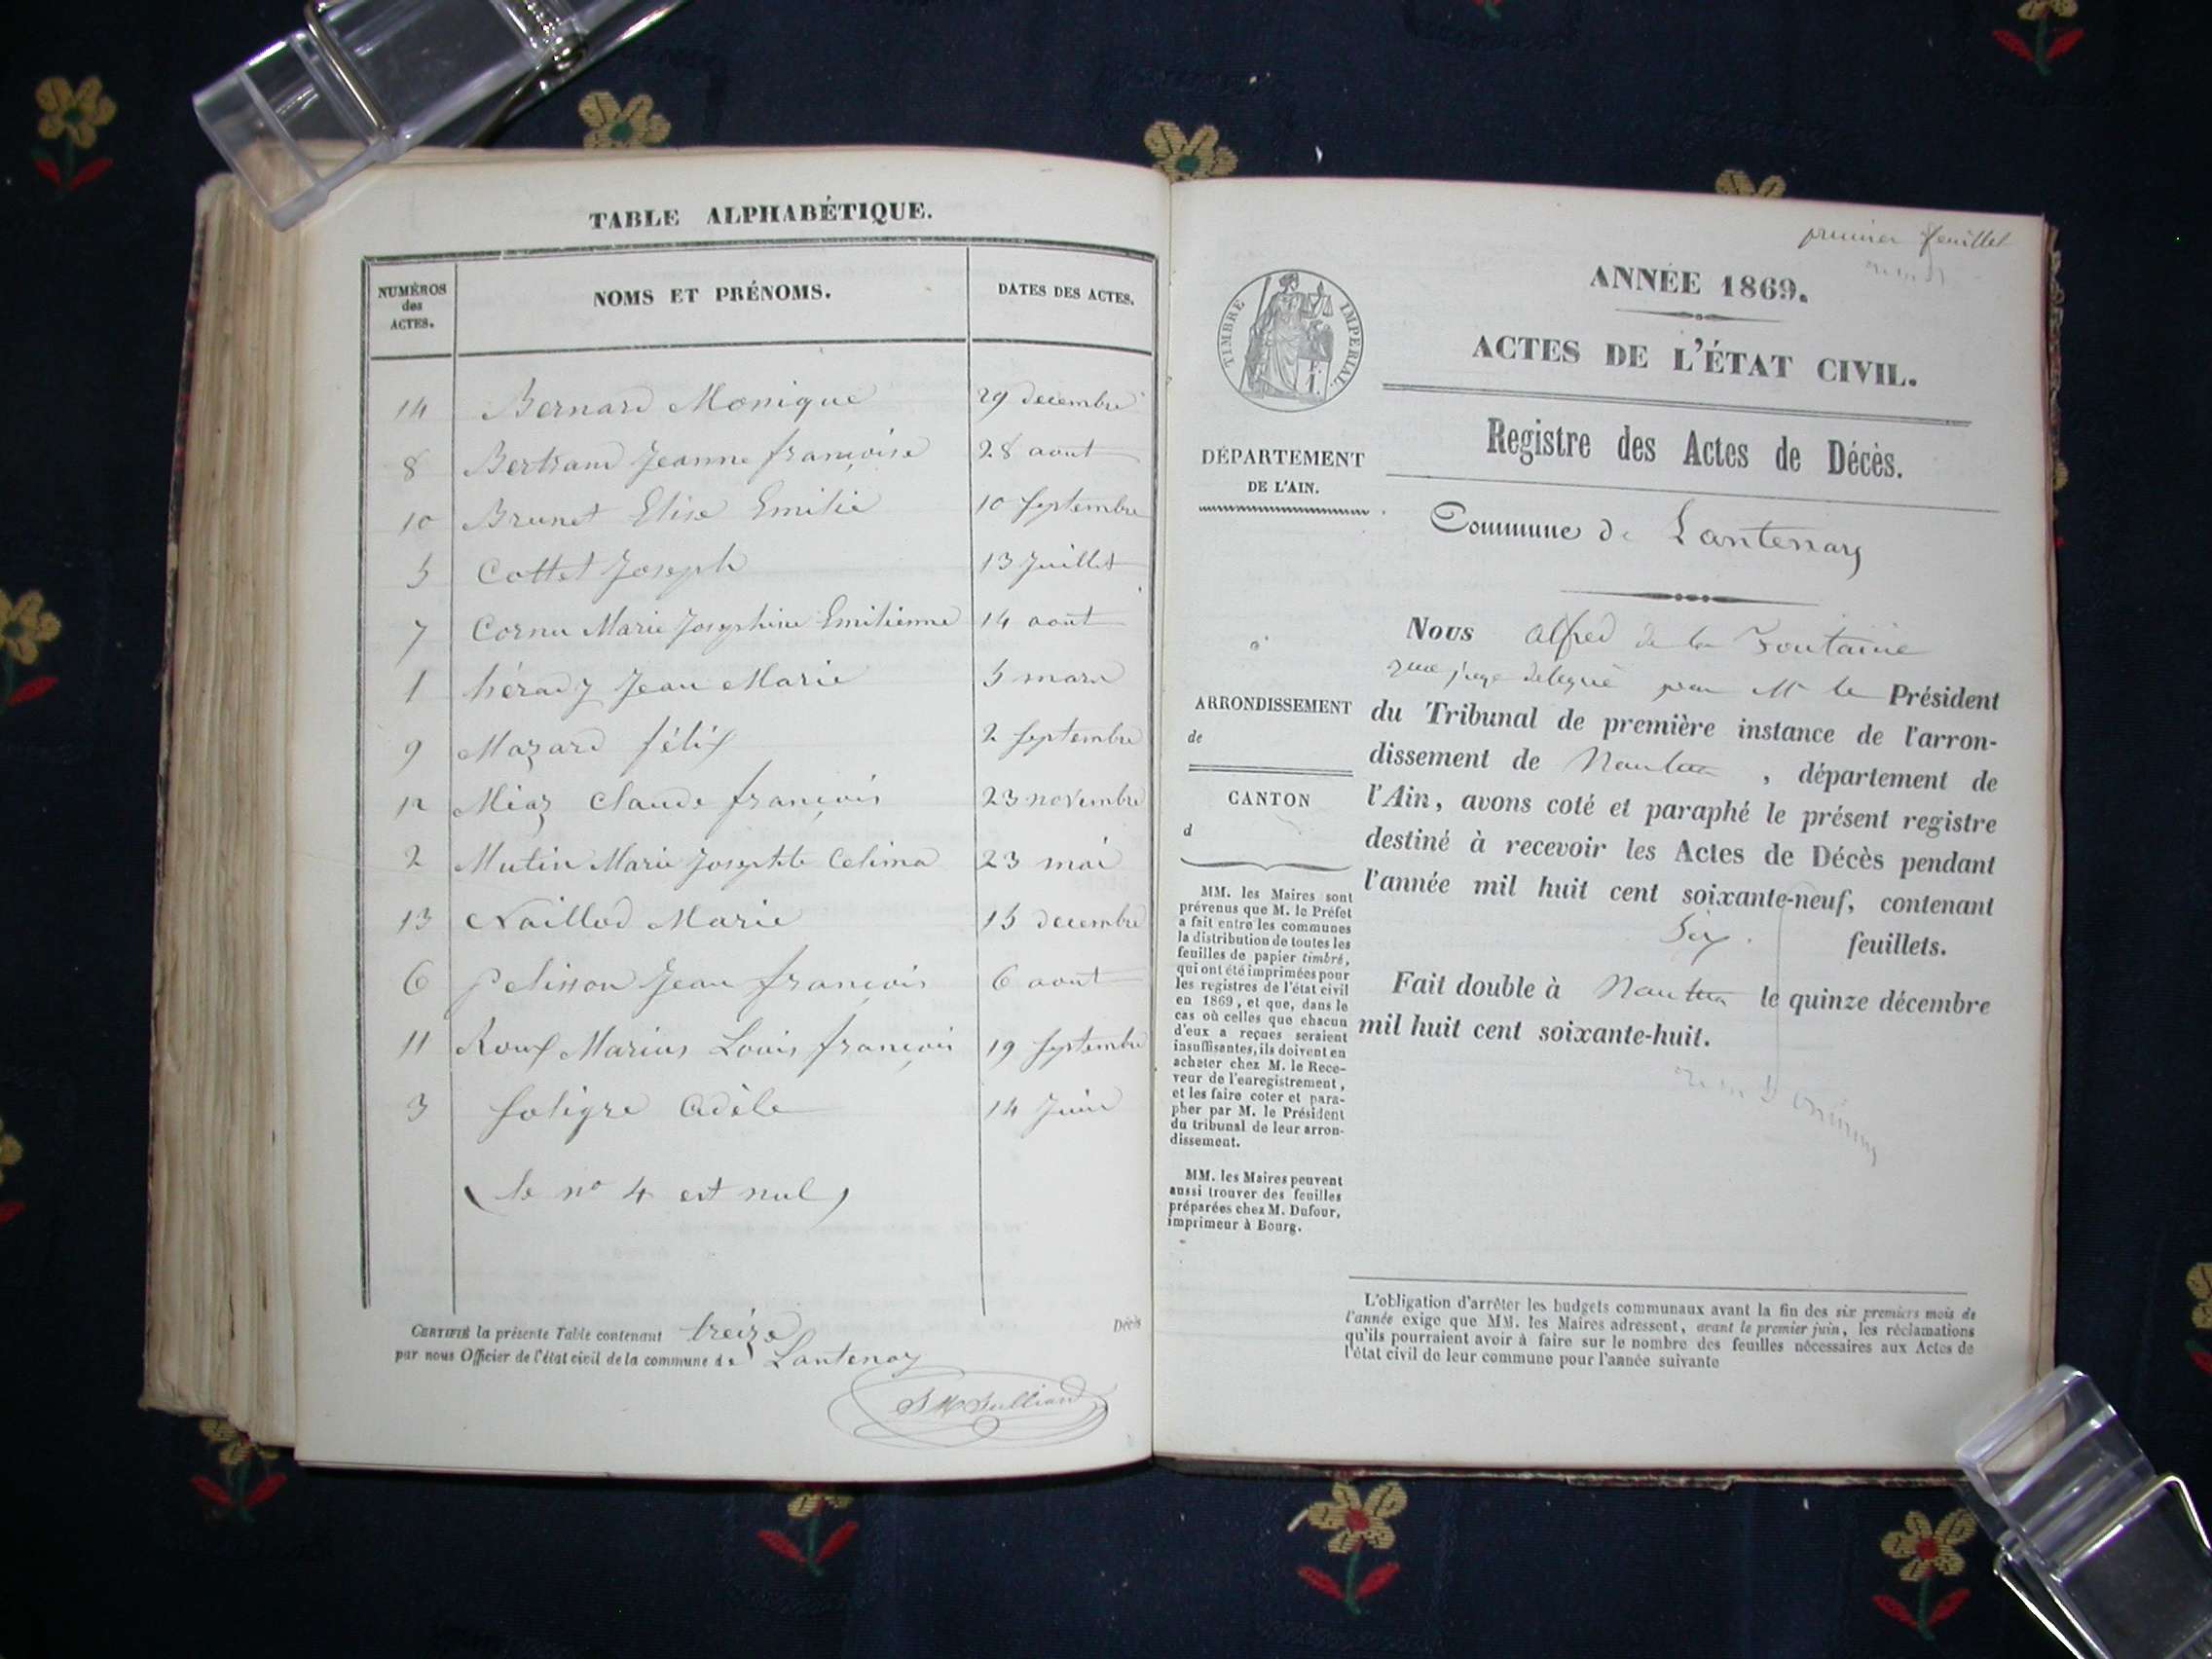 TABLE ALPHABÉTIQUE.
NUMÉROS des ACTES. NOMS ET PRÉNOMS. DATES DES ACTES.
14 Bernard Monique 29 decembre
8 Bertrand Jeanne françoise 28 aout
10 Brunet Elise Emilie 10 septembre
5 Cottet Joseph 13 Juillet
7 Cornu Marie Josephine Emilienne 14 aout
1 Jean Marie 5 mars
9 Mazard félix 2 septembre
12 Miaz Claude françois 23 novembre
2 Mutin Marie Josephte Celima 23 mai
13 Naillod Marie 15 decembre
6 Pelisson Jean françois 6 aout
11 Roux Marius Louis françois 19 septembre
3 Adèle 14 Juin
(le no 4 est nul)
CERTIFIÉ la présente Table contenant treize Décès
par nous Officier de l'état civil de la commune de Lantenay
premier feuillet
TIMBRE IMPÉRIAL.
ANNÉE 1869.
ACTES DE L'ÉTAT CIVIL.
Registre des Actes de Décès.
Commune de Lantenay
DÉPARTEMENT
DE L'AIN.
ARRONDISSEMENT
de
CANTON
d
MM. les Maires sont
prévenus que M. le Préfet
a fait entre les communes
la distribution de toutes les
feuilles de papier timbré,
qui ont été imprimées pour
les registres de l'état civil
en 1869, et que, dans le
cas où celles que chacun
d'eux a reçues seraient
insuffisantes, ils doivent en
acheter chez M. le Rece-
veur de l'enregistrement,
et les faire coter et para-
pher par M. le Président
du tribunal de leur arron-
dissement.
MM. les Maires peuvent
aussi trouver des feuilles
préparées chez M. Dufour,
imprimeur à Bourg.
Nous Alfred de la Fontaine
juge delegué par Mr le Président
du Tribunal de première instance de l'arron-
dissement de Nantua, département de
l'Ain, avons coté et paraphé le présent registre
destiné à recevoir les Actes de Décès pendant
l'année mil huit cent soixante-neuf, contenant
Six feuillets.
Fait double à Nantua le quinze décembre
mil huit cent soixante-huit.
L'obligation d'arrêter les budgets communaux avant la fin des six premiers mois de
l'année exige que MM. les Maires adressent, avant le premier juin, les réclamations
qu'ils pourraient avoir à faire sur le nombre des feuilles nécessaires aux Actes de
l'état civil de leur commune pour l'année suivante